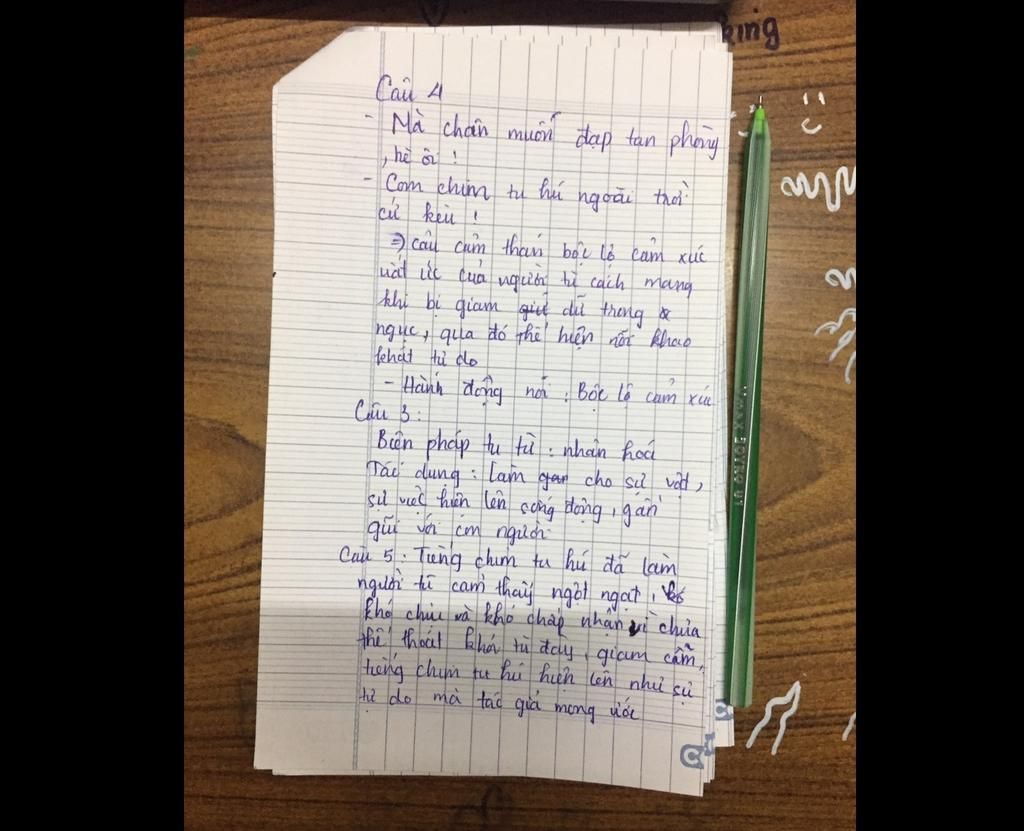 king
Câu 4
- Mà chân muốn đạp tan phòng
, hè ôi !
- Con chim tu hú ngoài trời
cứ kêu !
=> câu cảm thán bộc lộ cảm xúc
uất ức của người tù cách mạng
khi bị giam giữ dữ trong
ngục, qua đó thể hiện nỗi khao
khát tự do
- Hành động nói : Bộc lộ cảm xúc
Câu 3 :
Biện pháp tu từ : nhân hoá
Tác dụng : Làm cho sự vật,
sự việc hiện lên sống động, gần
gũi với con người
Câu 5 : Tiếng chim tu hú đã làm
người tù cảm thấy ngột ngạt,
khó chịu và khó chấp nhận vì chưa
thể thoát khỏi tù đày, giam cầm,
tiếng chim tu hú hiện lên như sự
tự do mà tác giả mong ước